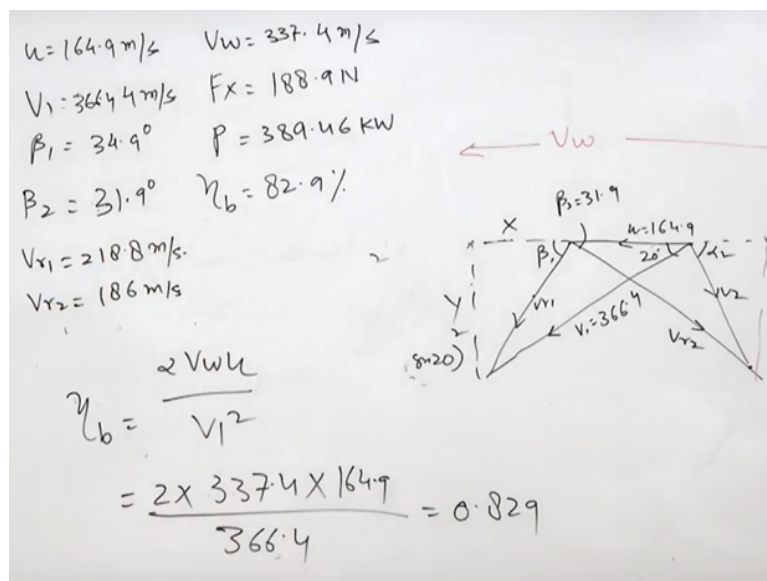 u=164.9 m/s Vw= 337.4 m/s
V1=366.4 m/s Fx= 188.9 N
β1 = 34.9° P = 389.46 KW
β2 = 31.9° ηb= 82.9%
Vr1 = 218.8 m/s.
Vr2 = 186 m/s
Vw
β2=31.9
X u=164.9
β1 20° α2
y Vr1 V1=366.4 Vr2 V2
sin20)
ηb = 2 Vw u / V1²
= 2 x 337.4 x 164.9 / 366.4 = 0.829